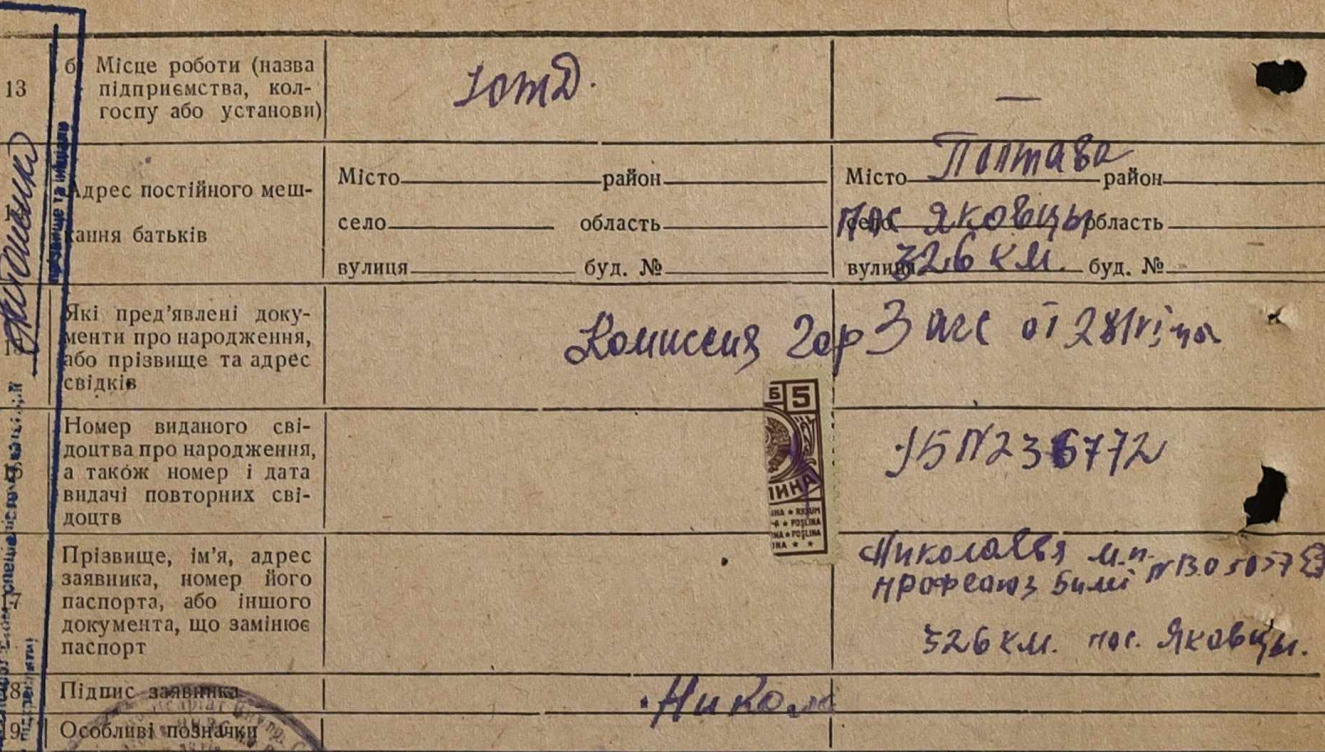 13
б) Місце роботи (назва
підприємства, кол-
госпу або установи)
ЮжД.
—
Адрес постійного меш-
кання батьків
Місто район
село область
вулиця буд. №
Місто Полтава район
село пос Яковцы область
вулиця 326 км. буд. №
Які пред'явлені доку-
менти про народження,
або прізвище та адрес
свідків
Комиссия Гор Загс от
Номер виданого сві-
доцтва про народження,
а також номер і дата
видачі повторних сві-
доцтв
N236772
Б 5
ИНА
Прізвище, ім'я, адрес
заявника, номер його
паспорта, або іншого
документа, що замінює
паспорт
м.п.
профсоюз билет
326 км. пос. Яковцы.
8 Підпис заявника
Никола
9 Особливі позначки